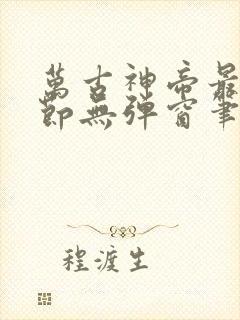 萬古神帝最
節無彈窗筆
程渡生